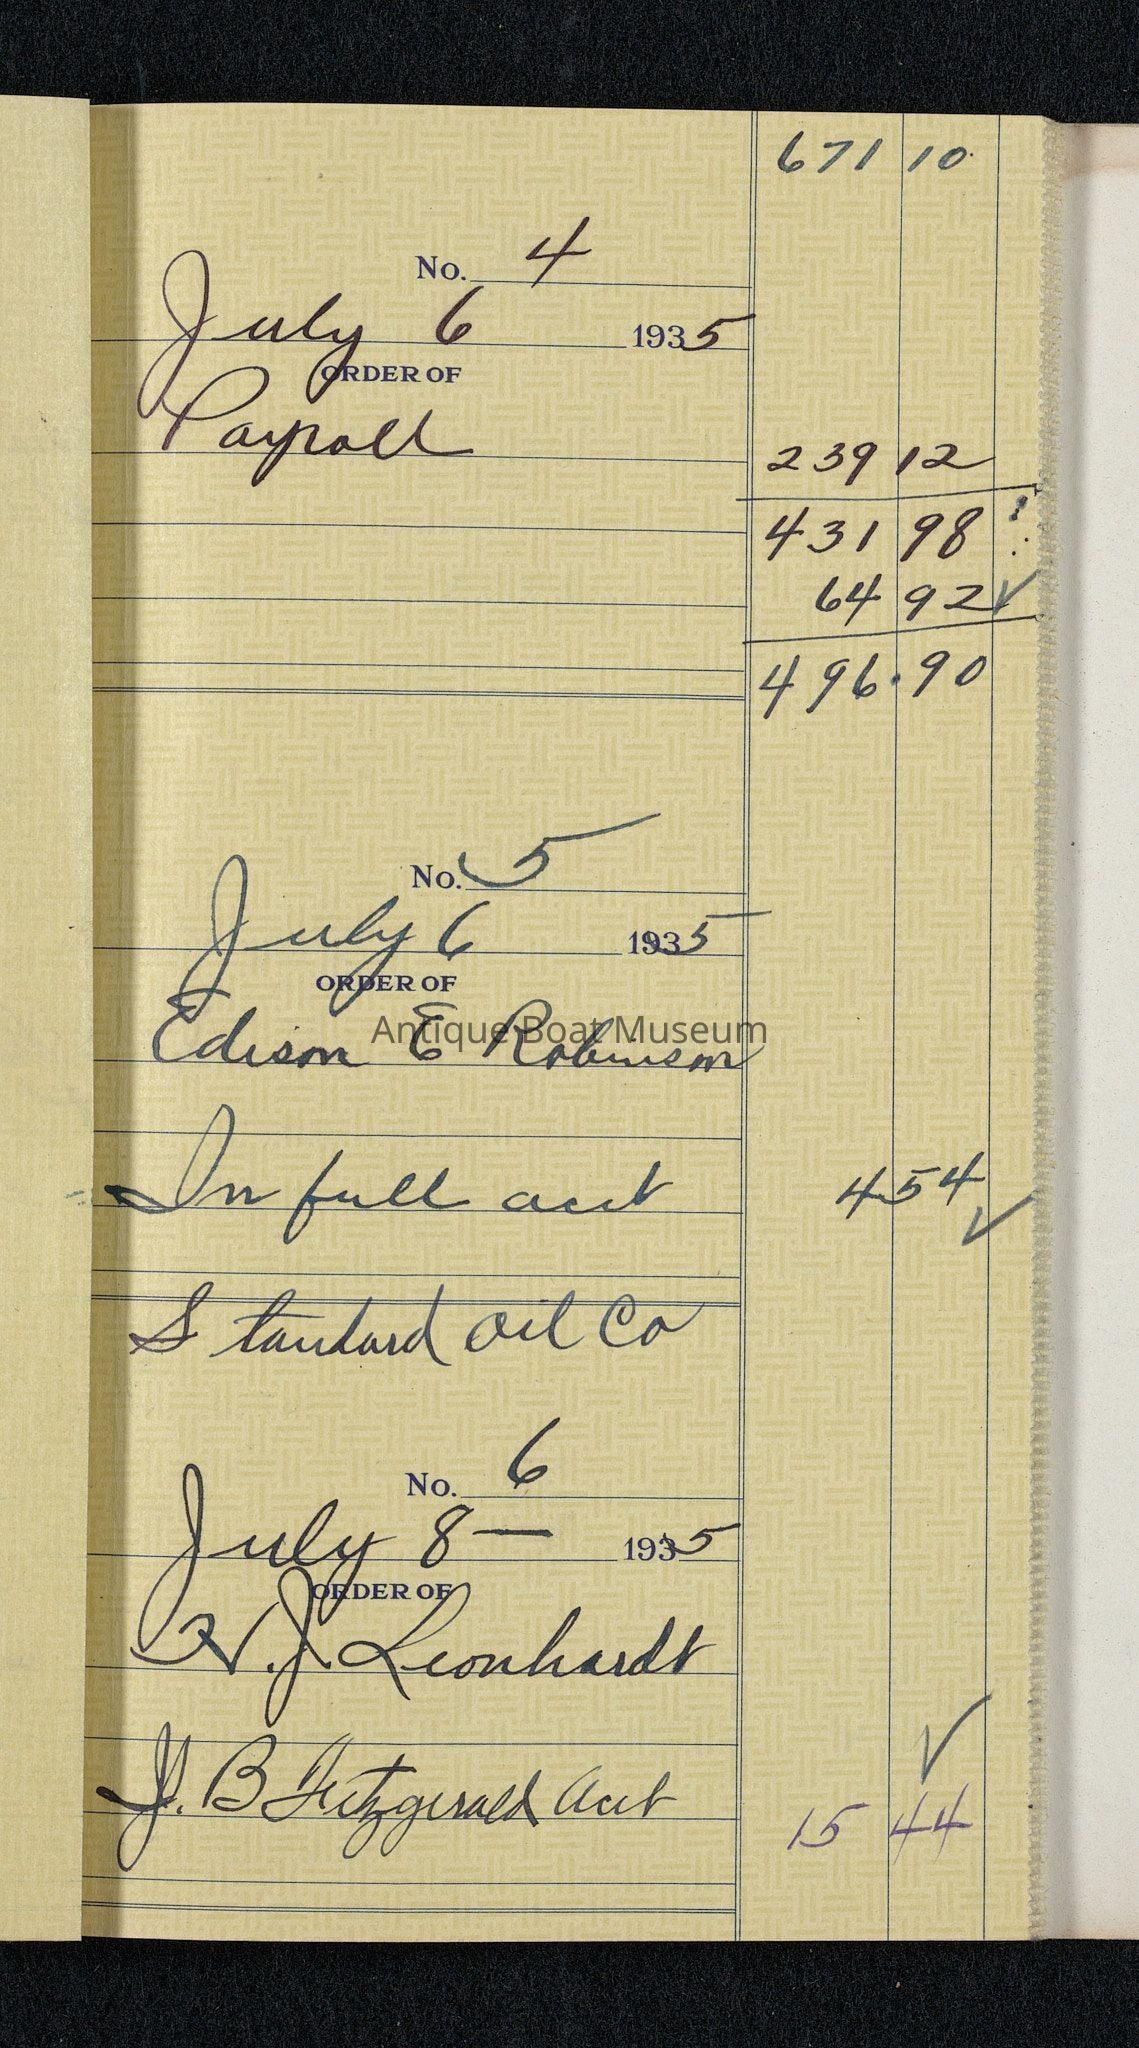 671 10
No. 4
July 6 1935
ORDER OF
Payroll
239 12
431 98
64 92 ✓
496.90
No. 5
July 6 1935
ORDER OF
Edison E Robinson
Antique Boat Museum
In full acct 4 54 ✓
Standard Oil Co
No. 6
July 8 — 1935
ORDER OF
W. J. Leonhardt
✓
J. B Fitzgerald Acct 15 44